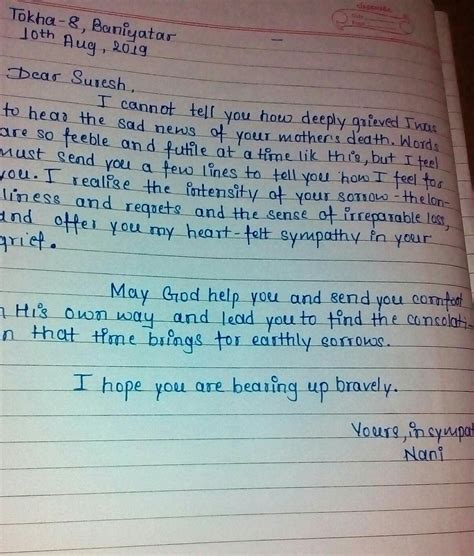 Tokha-8, Baniyatar
10th Aug, 2019
Dear Suresh,
I cannot tell you how deeply grieved I was
to hear the sad news of your mother's death. Words
are so feeble and futile at a time lik this, but I feel
must send you a few lines to tell you how I feel for
you. I realise the intensity of your sorrow - the lon-
liness and regrets and the sense of irreparable loss,
and offer you my heart-felt sympathy in your
grief.
May God help you and send you comfort
n His own way and lead you to find the consolati-
n that time brings for earthly sorrows.
I hope you are bearing up bravely.
Yours, in sympat
Nani